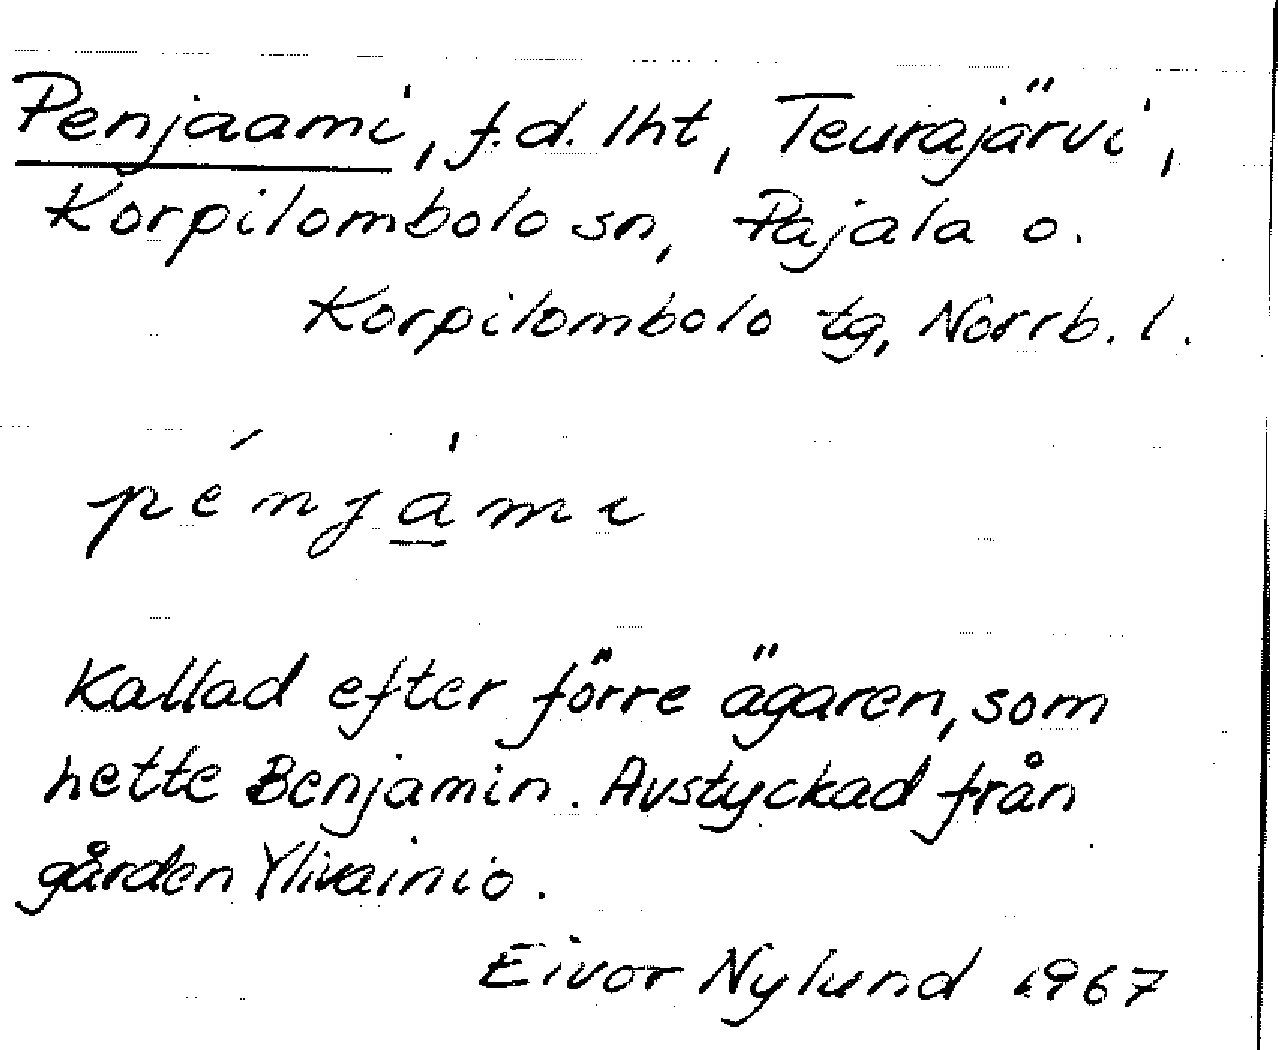 Penjaami, f.d. lht, Teurajärvi,
Korpilombolo sn, Pajala o.
Korpilombolo tg, Norrb. l.
pénjà̱mi
Kallad efter förre ägaren, som
hette Benjamin. Avstyckad från
gården Ylivainio.
Eivor Nylund 1967